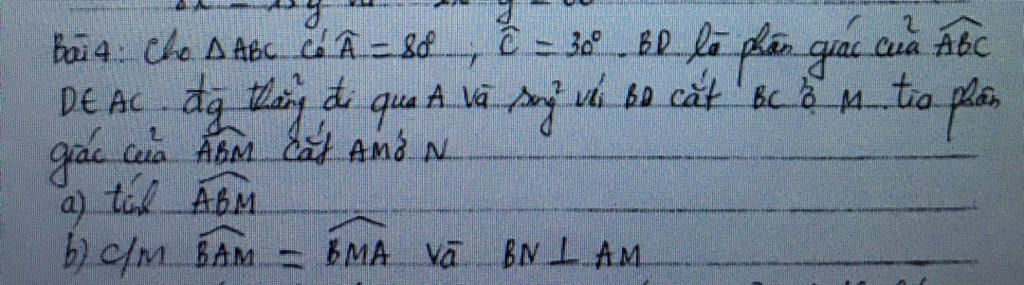 Bài 4: Cho △ABC có Â = 80°, Ĉ = 30°. BD là phân giác của \widehat{ABC}
D∈AC. đg thẳng đi qua A và sog² với BD cắt BC ở M. tia phân
giác của \widehat{ABM} cắt AM ở N
a) tính \widehat{ABM}
b) C/M \widehat{BAM} = \widehat{BMA} và BN ⊥ AM